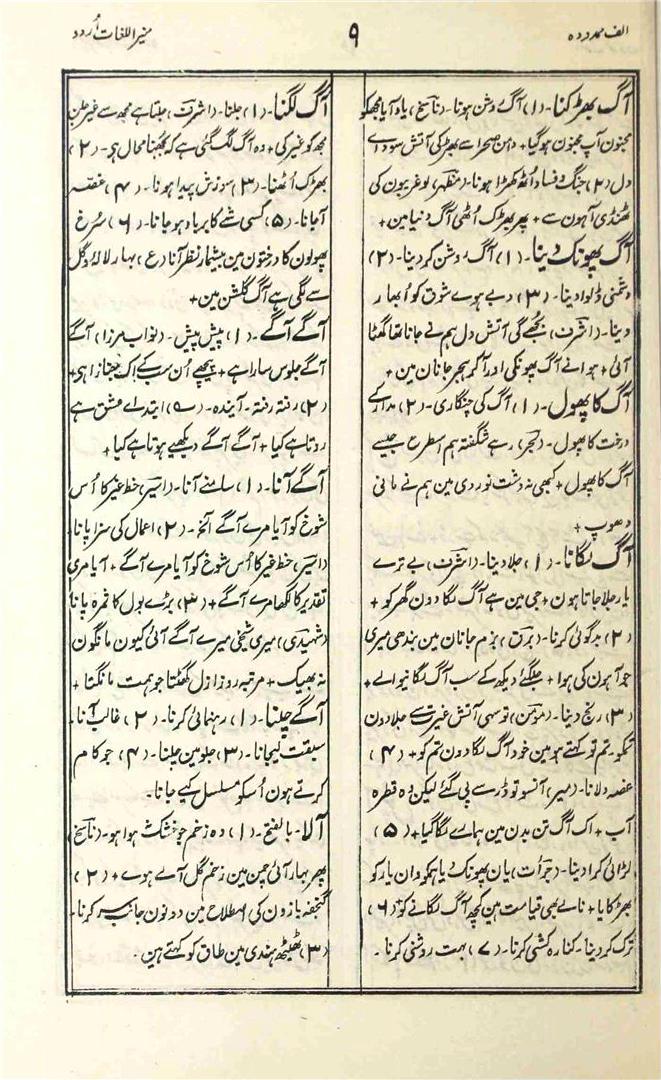 الف ممدودہ
۹
منیر اللغات اُردو
آگ بھڑکنا۔ (۱) آگ روشن ہونا۔ (ناسخ) یاد آیا مجھکو
مجنون آپ مجنون ہوگیا + دامن صحرا سے بھڑکی آتش سوداے
دل (۲) جنگ و فساد اُٹھ کھڑا ہونا۔ (مظہر) لو غریبون کی
ٹھنڈی آہون سے + پھر بھڑک اُٹھی آگ دنیا مین +
آگ پھونک دینا۔ (۱) آگ روشن کردینا۔ (۲)
دشمنی ڈلوا دینا۔ (۳) دبے ہوے شوق کو اُبھار
دینا۔ (اشرف) بجھے گی آتش دل ہم نے جانا تھا گھٹا
آئی + ہوا نے آگ پھونکی اور آکر ہجر جانان مین +
آگ کا پھول۔ (۱) آگ کی چنگاری۔ (۲) مدار کے
درخت کا پھول۔ (بحر) رہے شگفتہ ہم اسطرح جیسے
آگ کا پھول + کبھی نہ دشت نوردی مین ہم نے مانی
دھوپ +
آگ لگانا۔ (۱) جلا دینا۔ (اشرف) بے ترے
یار جلا جاتا ہون + جی مین ہے آگ لگا دون گھر کو +
(۲) بدگوئی کرنا۔ (برق) بزم جانان مین بندھی میری
جو آہون کی ہوا + جلگئے دیکھ کے سب آگ لگانیوالے +
(۳) رنج دینا۔ (مومن) تو سہی آتش غیرت سے جلا دون
تمکو۔ تم تو کہتے ہو مین خود آگ لگا دون تم کو + (۴)
غصہ دلانا۔ (میر) آنسو تو ڈر سے پی گئے لیکن وہ قطرہ
آب + اک آگ تن بدن مین ہمارے لگا گیا + (۵)
لڑائی کرا دینا۔ (جرأت) یان پھونک دیا ہمکو وان یار کو
بھڑکایا + نالے بھی قیامت ہین کچھ آگ لگانے کو (۶)
ترک کر دینا۔ کنارہ کشی کرنا۔ (۷) بہت روشنی کرنا۔
آگ لگنا۔ (۱) جلنا۔ (اشرف) جلتا ہے مجھ سے غیر جلن
مجھ کو غیر کی + وہ آگ لگ گئی ہے کہ بجھنا محال ہی۔ (۲)
بھڑک اُٹھنا۔ (۳) سوزش پیدا ہونا۔ (۴) غصہ
آجانا۔ (۵) کسی شے کا برباد ہو جانا۔ (۶) سُرخ
پھولون کا درختون مین بیشمار نظر آنا (ع) بہار لالہ و گل
سے لگی ہے آگ گلشن مین +
آگے آگے۔ (۱) پیش پیش۔ (نواب مرزا) آگے
آگے جلوس سارا ہے + پیچھے اُن سب کے اک جنازا ہی +
(۲) رفتہ رفتہ۔ آیندہ۔ ابتداے عشق ہے
روتا ہے کیا + آگے آگے دیکھیے ہوتا ہے کیا +
آگے آنا۔ (۱) سامنے آنا۔ (اسیر) خط غیر کا اُس
شوخ کو آیا مرے آگے الخ۔ (۲) اعمال کی سزا پانا
(اسیر) خط غیر کا اُس شوخ کو آیا مرے آگے + آیا مری
تقدیر کا لکھا مرے آگے + (۳) بڑے بول کا ثمرہ پانا
(شہیدی) میری شیخی میرے آگے آئی کیون مانگون
نہ بھیک + مرتبہ روز ازل گھٹتا جو ہمت مانگتا +
آگے چلنا۔ (۱) رہنمائی کرنا۔ (۲) غالب آنا۔
سبقت لیجانا۔ (۳) جلو مین چلنا۔ (۴) جو کام
کرتے ہون اُسکو مسلسل کیے جانا۔
آلا۔ بالفتح۔ (۱) وہ زخم جو خشک نہ ہوا ہو۔ (ناسخ)
پھر بہار آئی چمن مین زخم گل آلے ہوے + (۲)
گنجفہ بازون کی اصطلاح مین دونون جانب سر کرنا۔
(۳) ٹھیٹھ ہندی مین طاق کو کہتے ہین۔